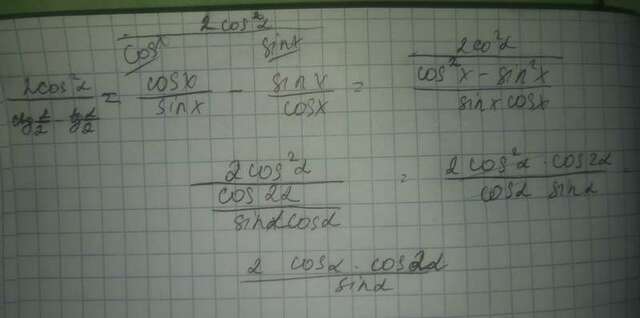 2cos²α
cosx sinx
2cos²α / (ctg α/2 - tg α/2) = cosx/sinx - sinx/cosx = 2co²α / ((cos²x - sin²x)/(sinx cosx))
2cos²α / (cos2α/(sinα cosα)) = (2cos²α · cos2α)/(cosα sinα)
(2 cosα · cos2α)/sinα